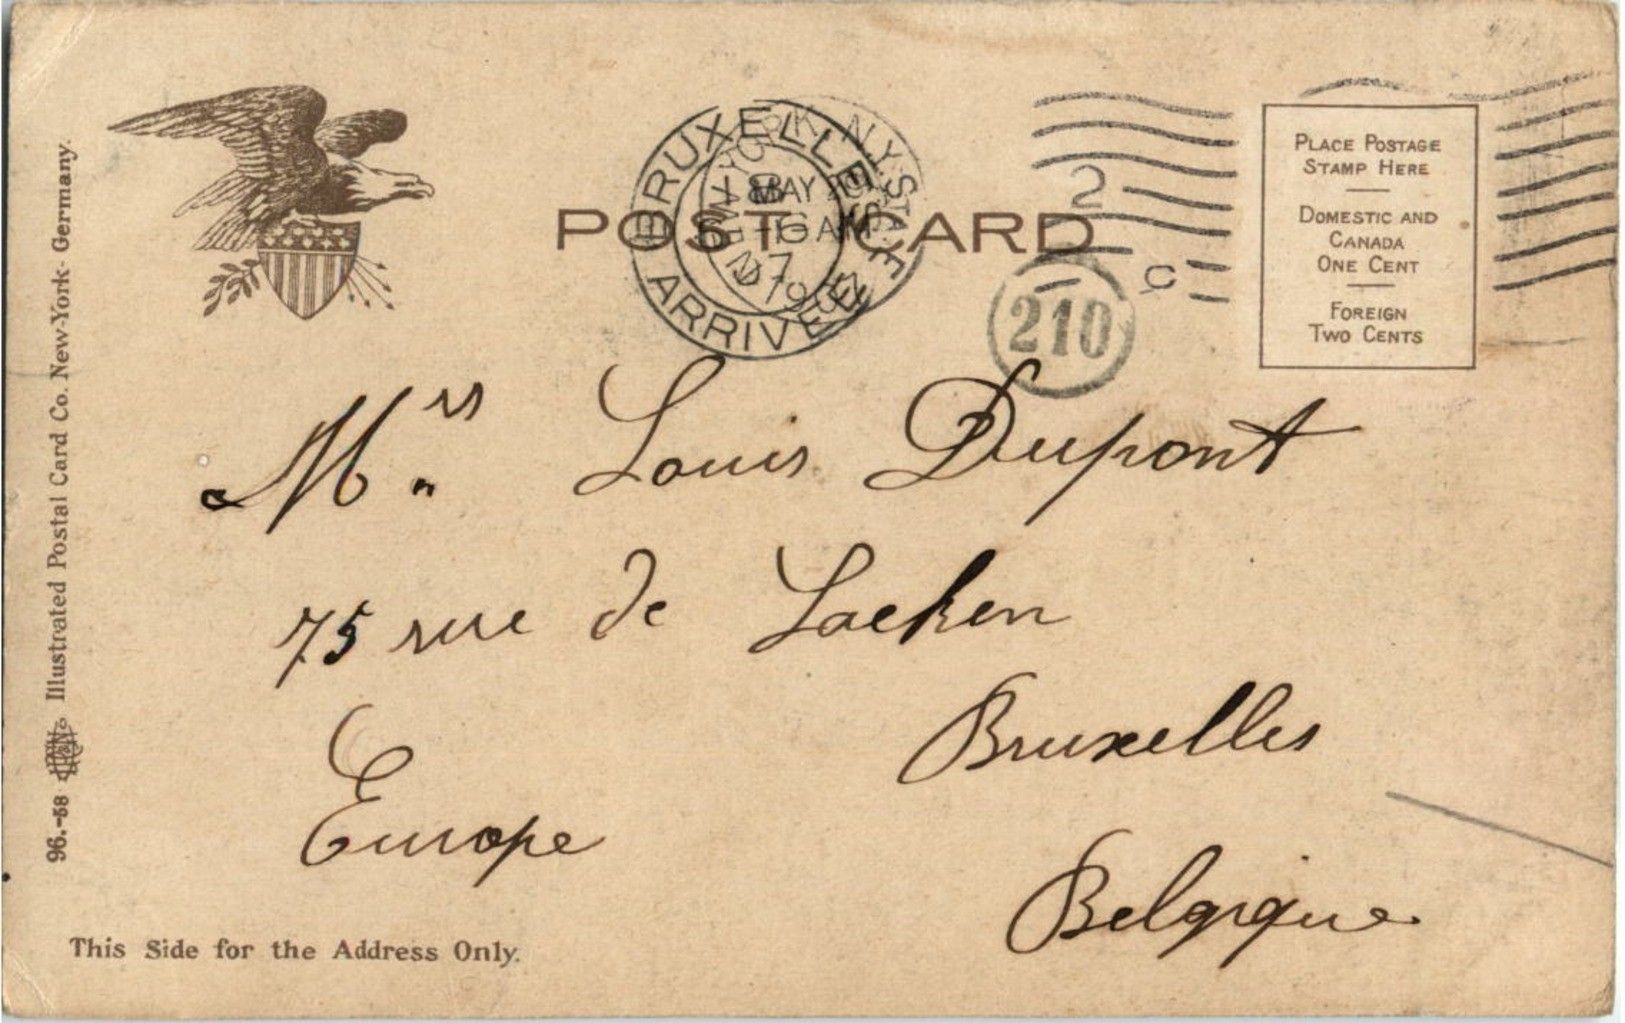 POST CARD
BRUXELLES
ARRIVEE
N.Y. STA. E
MAY
AM
2
210
PLACE POSTAGE
STAMP HERE
DOMESTIC AND
CANADA
ONE CENT
FOREIGN
TWO CENTS
Mrs Louis Dupont
75 rue de Laeken
Bruxelles
Europe
Belgique
This Side for the Address Only.
96.-58 Illustrated Postal Card Co. New-York- Germany.